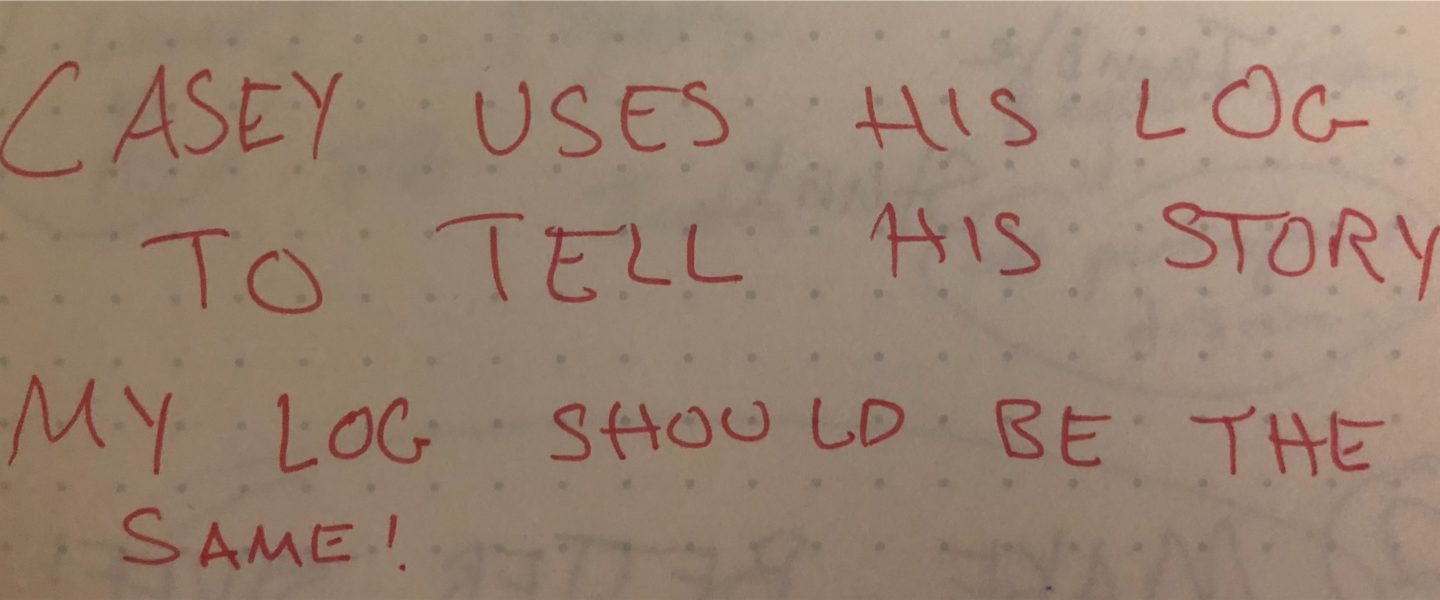 CASEY USES HIS LOG
TO TELL HIS STORY
MY LOG SHOULD BE THE
SAME!